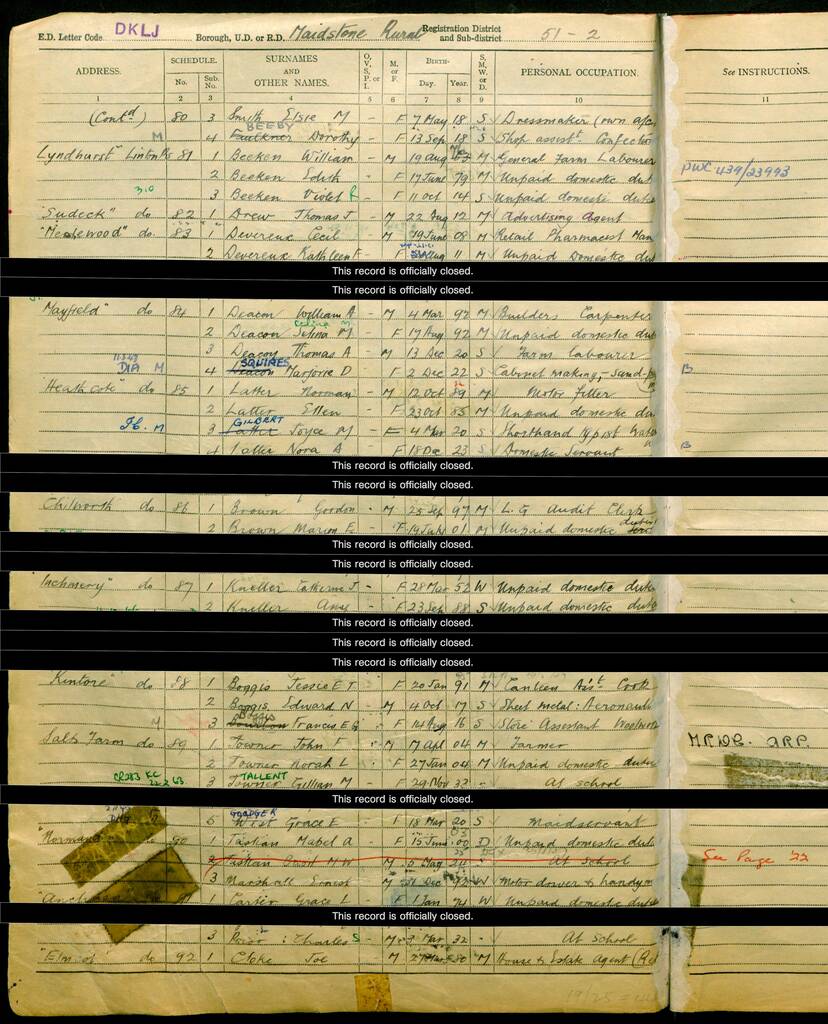 E.D. Letter Code DKLJ Borough, U.D. or R.D. Maidstone Rural Registration District and Sub-district 51-2
ADDRESS. SCHEDULE. No. Sub. No. SURNAMES AND OTHER NAMES. O, V, S, P, or I. M. or F. BIRTH— Day. Year. S, M, W, or D. PERSONAL OCCUPATION. See INSTRUCTIONS.
1 2 3 4 5 6 7 8 9 10 11
(Contd) 80 3 Smith Elsie M - F 7 May 18 S Dressmaker (own a/c
BEEBY
M 4 Faulkner Dorothy - F 13 Sep 18 S Shop assist. Confect
Lyndhurst" Linton Rd 81 1 Beeken William - M 19 Aug M General Farm Labourer
2 Beeken Edith - F 17 June 79 M Unpaid domestic dut
PWC 439/23993
3 Beeken Violet R - F 11 Oct 14 S Unpaid domestic dut
"Sudeck" do 82 1 Drew Thomas J - M 22 Aug 12 M Advertising Agent
do 83 1 Devereux Cecil - M 19 June 08 M Retail Pharmacist Man
2 Devereux Kathleen F - Aug 11 M Unpaid Domestic dut
This record is officially closed.
Mayfield" do 84 1 Deacon William A - M 4 Mar 92 M Builders Carpenter
2 Deacon Selina M - F 17 Aug 92 M Unpaid domestic dut
3 Deacon Thomas A - M 13 Dec 20 S Farm labourer
SQUIRES
M 4 Deacon Marjorie D F 2 Dec 22 S Cabinet making, - Sand-p B
"Heathcote" do 85 1 Latter Norman - M 12 Oct 89 M Motor fitter
2 Latter Ellen - F 23 Oct 85 M Unpaid domestic du
GILBERT
M 3 Latter Joyce M - F 4 Mar 20 S Shorthand typist
4 Latter Nora A F 18 Dec 23 S Domestic Servant B
This record is officially closed.
This record is officially closed.
Chilworth do 86 1 Brown Gordon - M 25 Sep 97 M L.G Audit Clerk
2 Brown Marion E - F 19 July 01 M Unpaid domestic duties
This record is officially closed.
This record is officially closed.
Inchmery" do 87 1 Kneller Catherine J - F 28 Mar 52 W Unpaid domestic dut
2 Kneller Amy F 23 Sep 88 S Unpaid domestic dut
This record is officially closed.
This record is officially closed.
This record is officially closed.
"Kintore" do 88 1 Boggis Jessie E T F 20 Jan 91 M Canteen Ass't Cook
2 Boggis Edward N - M 4 Oct 17 S Sheet metal: Aeronaut
M 3 Francis E G F 14 Aug 16 S Store Assistant Woolwor
Salts Farm do 89 1 Towner John F - M 17 Apl 04 M Farmer
2 Towner Norah L - F 27 Jan 04 M Unpaid domestic dut
TALLENT
3 Towner Gillian M - F 29 Nov 32 - At school
This record is officially closed.
GOODGER
5 West Grace E F 18 Mar 20 S Maidservant
"Norman 90 1 Tashan Mabel A - F 15 June 00 D Unpaid domestic dut
2 Tashan M W M 5 May 24 At School See Page 22
3 Marshall Ernest M 31 Dec 92 W Motor driver & handym
1 Carter Grace L F 1 Jan 74 W Unpaid domestic dut
This record is officially closed.
3 Prior : Charles S - M 3 Mar 32 - At School
do 92 1 Cloke Joe M 27 Mar 80 M House & Estate Agent (Ret